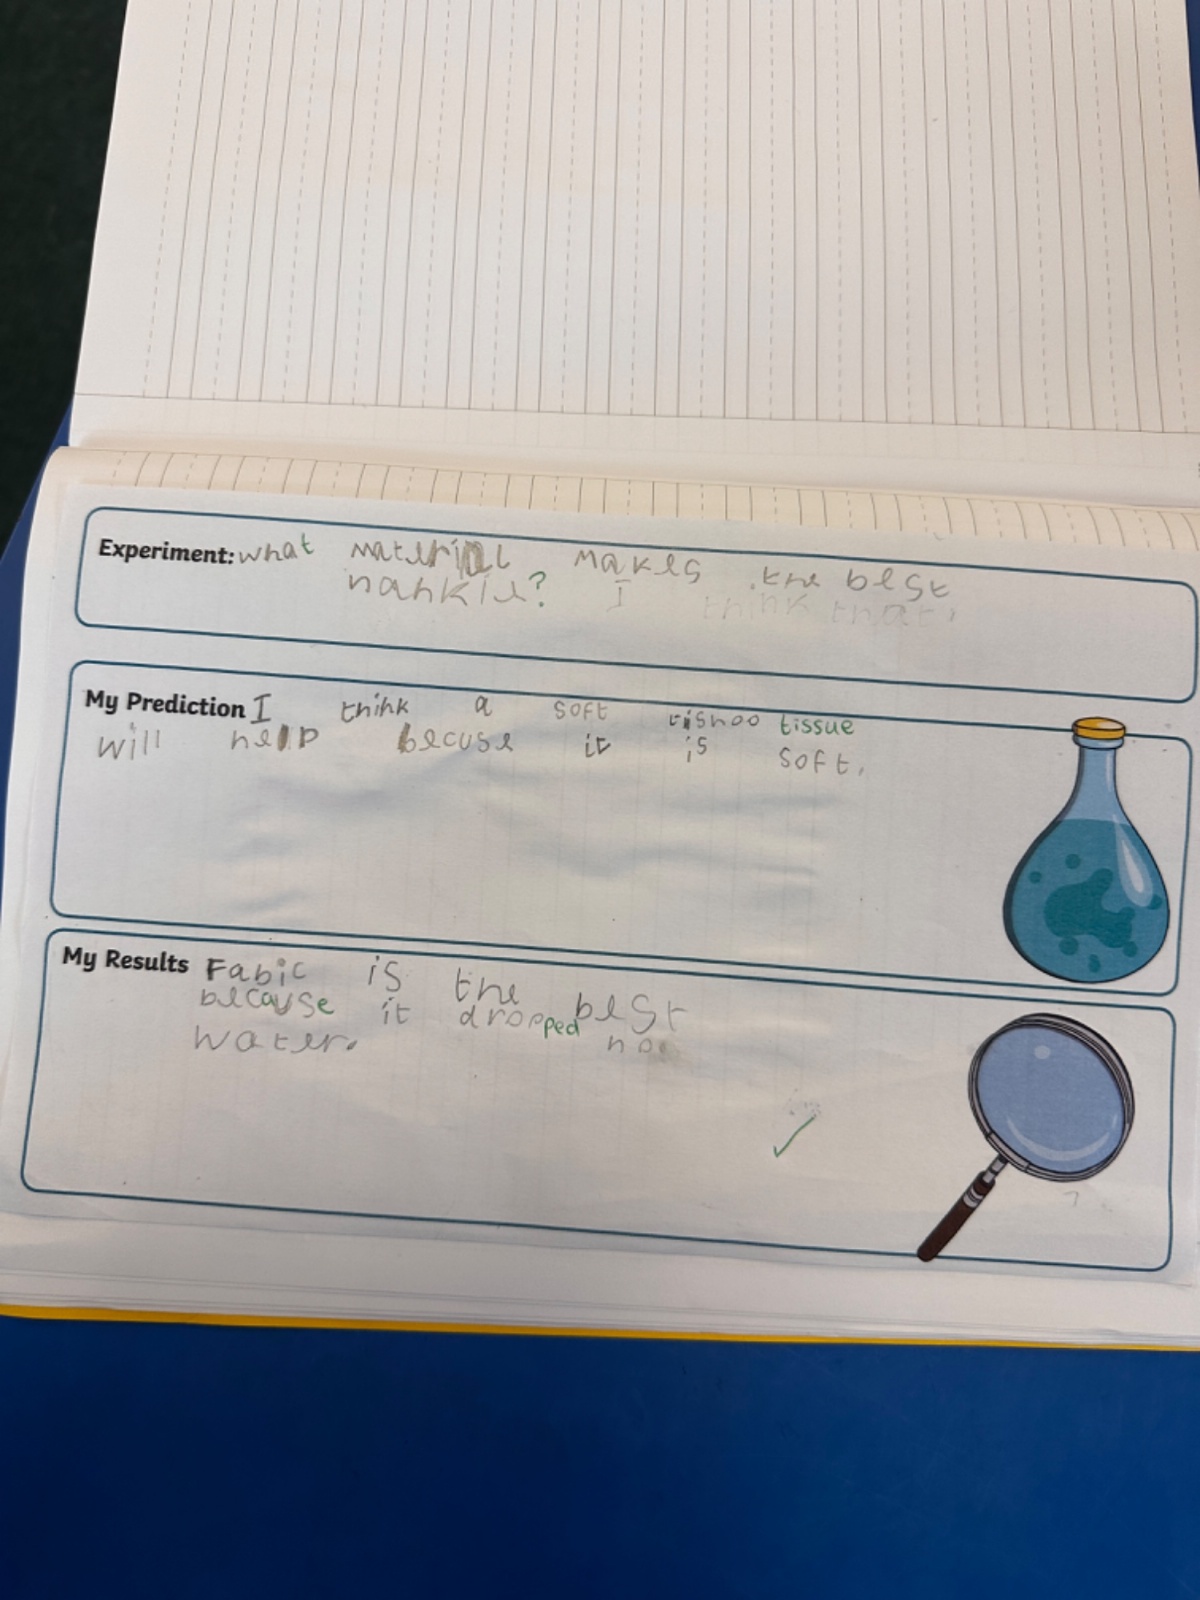 Experiment: what material makes the best
hankie? I think that.
My Prediction I think a soft tishoo tissue
will help becuse it is soft.
My Results Fabic is the best
because it dropped no
water.